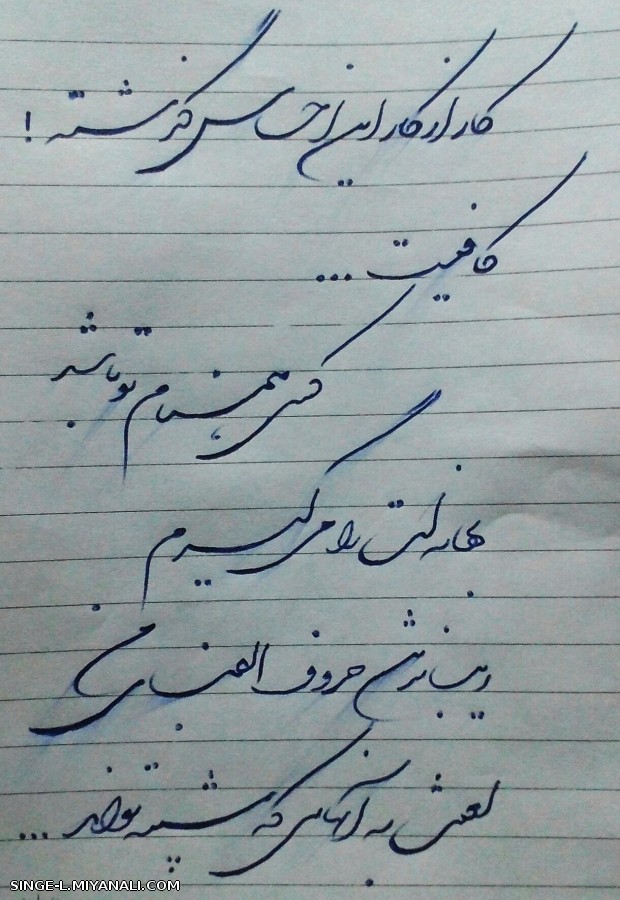 کار از کار این احساس گذشته !
کافیست ...
کسی همنام تو باشد
بهانه ات را می گیرم
زیباترین حروف الفبای من
لعنتی به آنهایی که شبیه تواند ...
SINGE-L.MIYANALI.COM